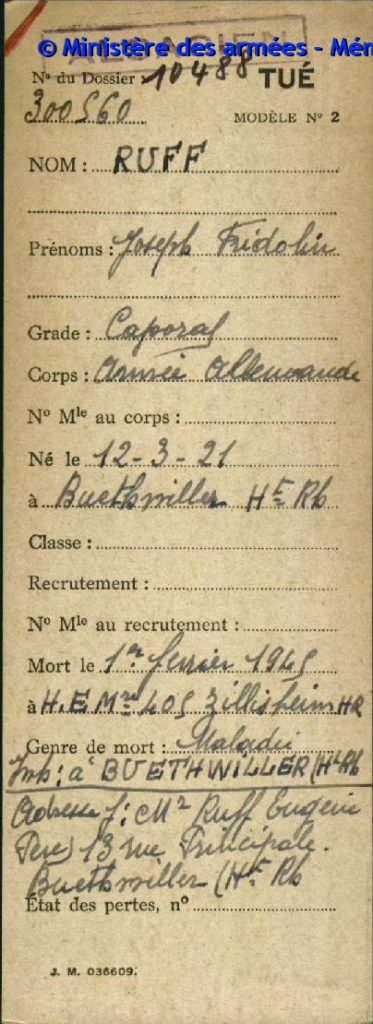 ALSACIEN
© Ministère des armées - Mém
N° du Dossier : 10488 TUÉ
300560
MODÈLE N° 2
NOM : RUFF
Prénoms : Joseph Fridolin
Grade : Caporal
Corps : Armée Allemande
N° Mle au corps :
Né le 12-3-21
à Buethwiller Ht Rh
Classe :
Recrutement :
N° Mle au recrutement :
Mort le 1er février 1945
à H.E Mre 405 Zillisheim HR
Genre de mort : Maladie
Inh : à BUETHWILLER (Ht Rh
Adresse f : Mr Ruff Eugène
Père) 13 rue Principale.
Buethwiller (Ht Rh
État des pertes, n°
J. M. 036609.